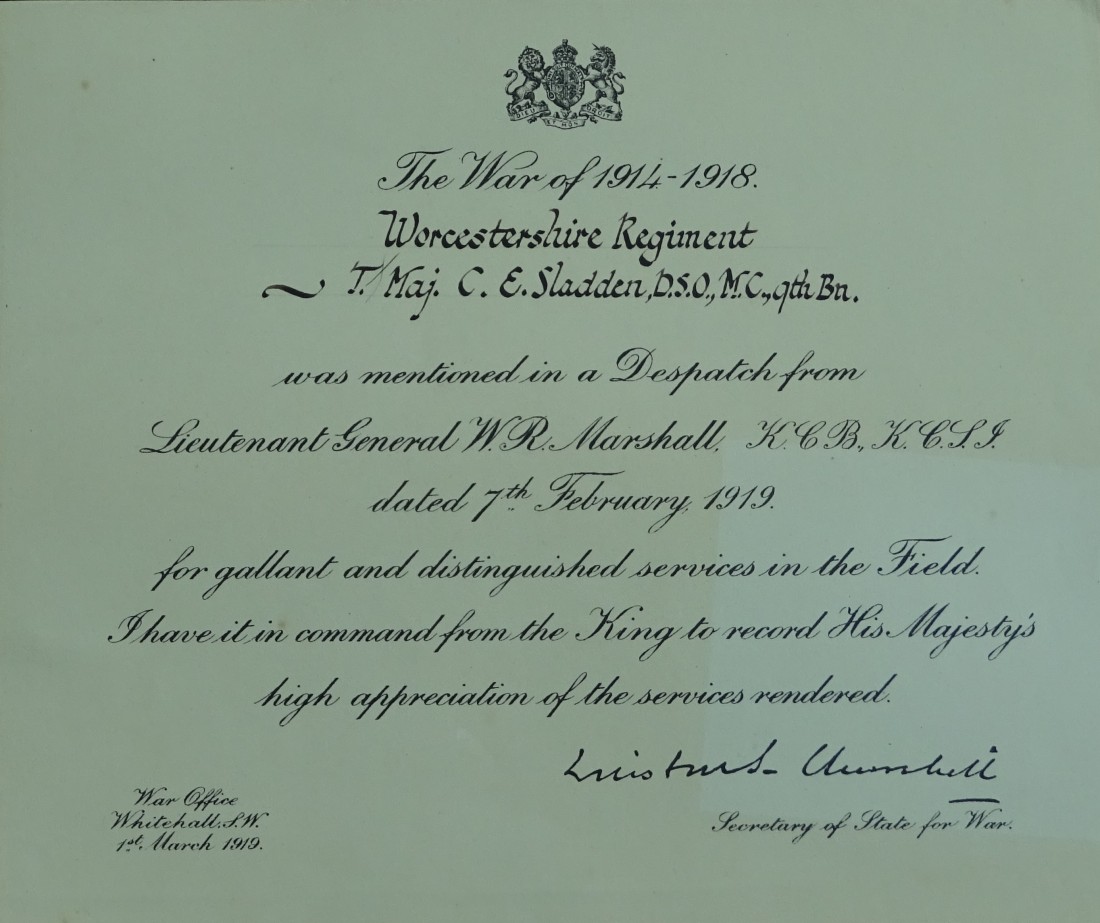 DIEU ET MON DROIT
The War of 1914-1918.
Worcestershire Regiment
T./Maj. C. E. Sladden, D.S.O., M.C., 9th Bn.
was mentioned in a Despatch from
Lieutenant General W. R. Marshall, K.C.B., K.C.S.I.
dated 7th February, 1919.
for gallant and distinguished services in the Field.
I have it in command from the King to record His Majesty's
high appreciation of the services rendered.
Winston S. Churchill
War Office
Whitehall. S.W.
1st. March 1919.
Secretary of State for War.